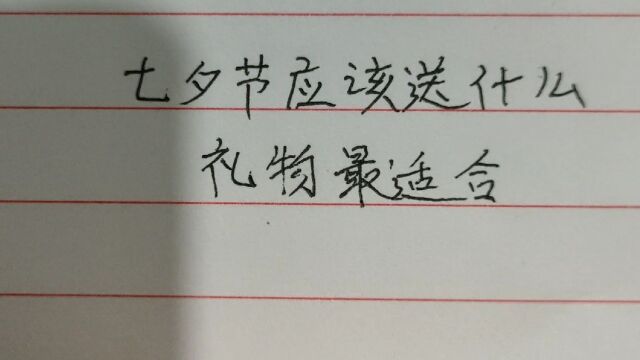 七夕节应该送什么
礼物最适合